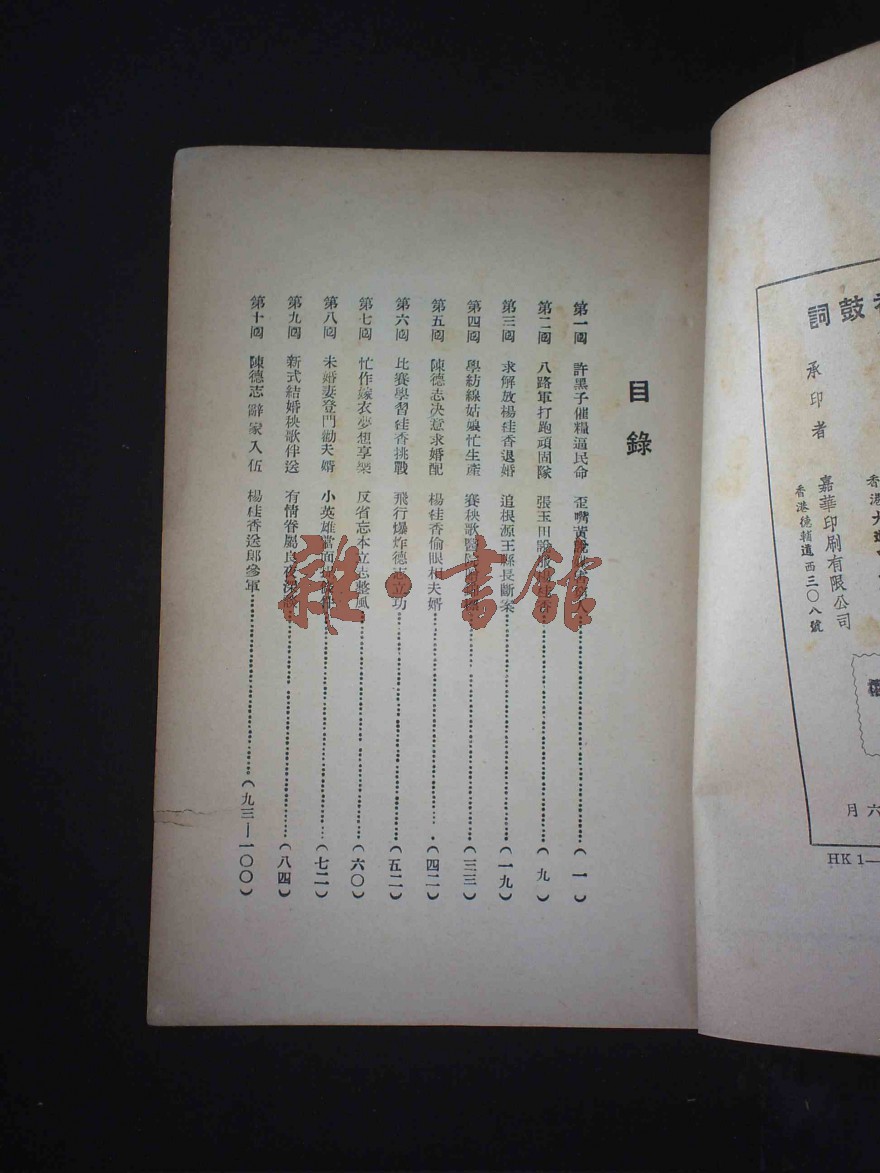 目錄
第一回 許黑子催糧逼民命 歪嘴黃 人……(一)
第二回 八路軍打跑頑固隊 張玉田 桂香……(九)
第三回 求解放楊桂香退婚 追根源王縣長斷案……(一九)
第四回 學紡線姑娘忙生產 賽秧歌醫院……(三三)
第五回 陳德志决意求婚配 楊桂香偷眼相夫婿……(四二)
第六回 比賽學習桂香挑戰 飛行爆炸德志立功……(五二)
第七回 忙作嫁衣夢想享樂 反省忘本立志整風……(六〇)
第八回 未婚妻登門勸夫婿 小英雄當面 條件……(七二)
第九回 新式結婚秧歌伴送 有情眷屬良夜深談……(八四)
第十回 陳德志辭家入伍 楊桂香送郎參軍……(九三—一〇〇)
鼓詞
承印者
嘉華印刷有限公司
香港德輔道西三〇八號
香港大道
六月
HK 1—
雜·書館